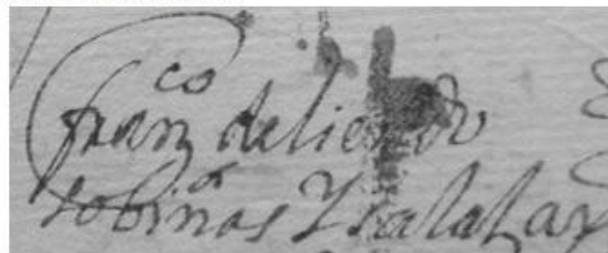 fran^co de liendo
sobiñas Y salazar